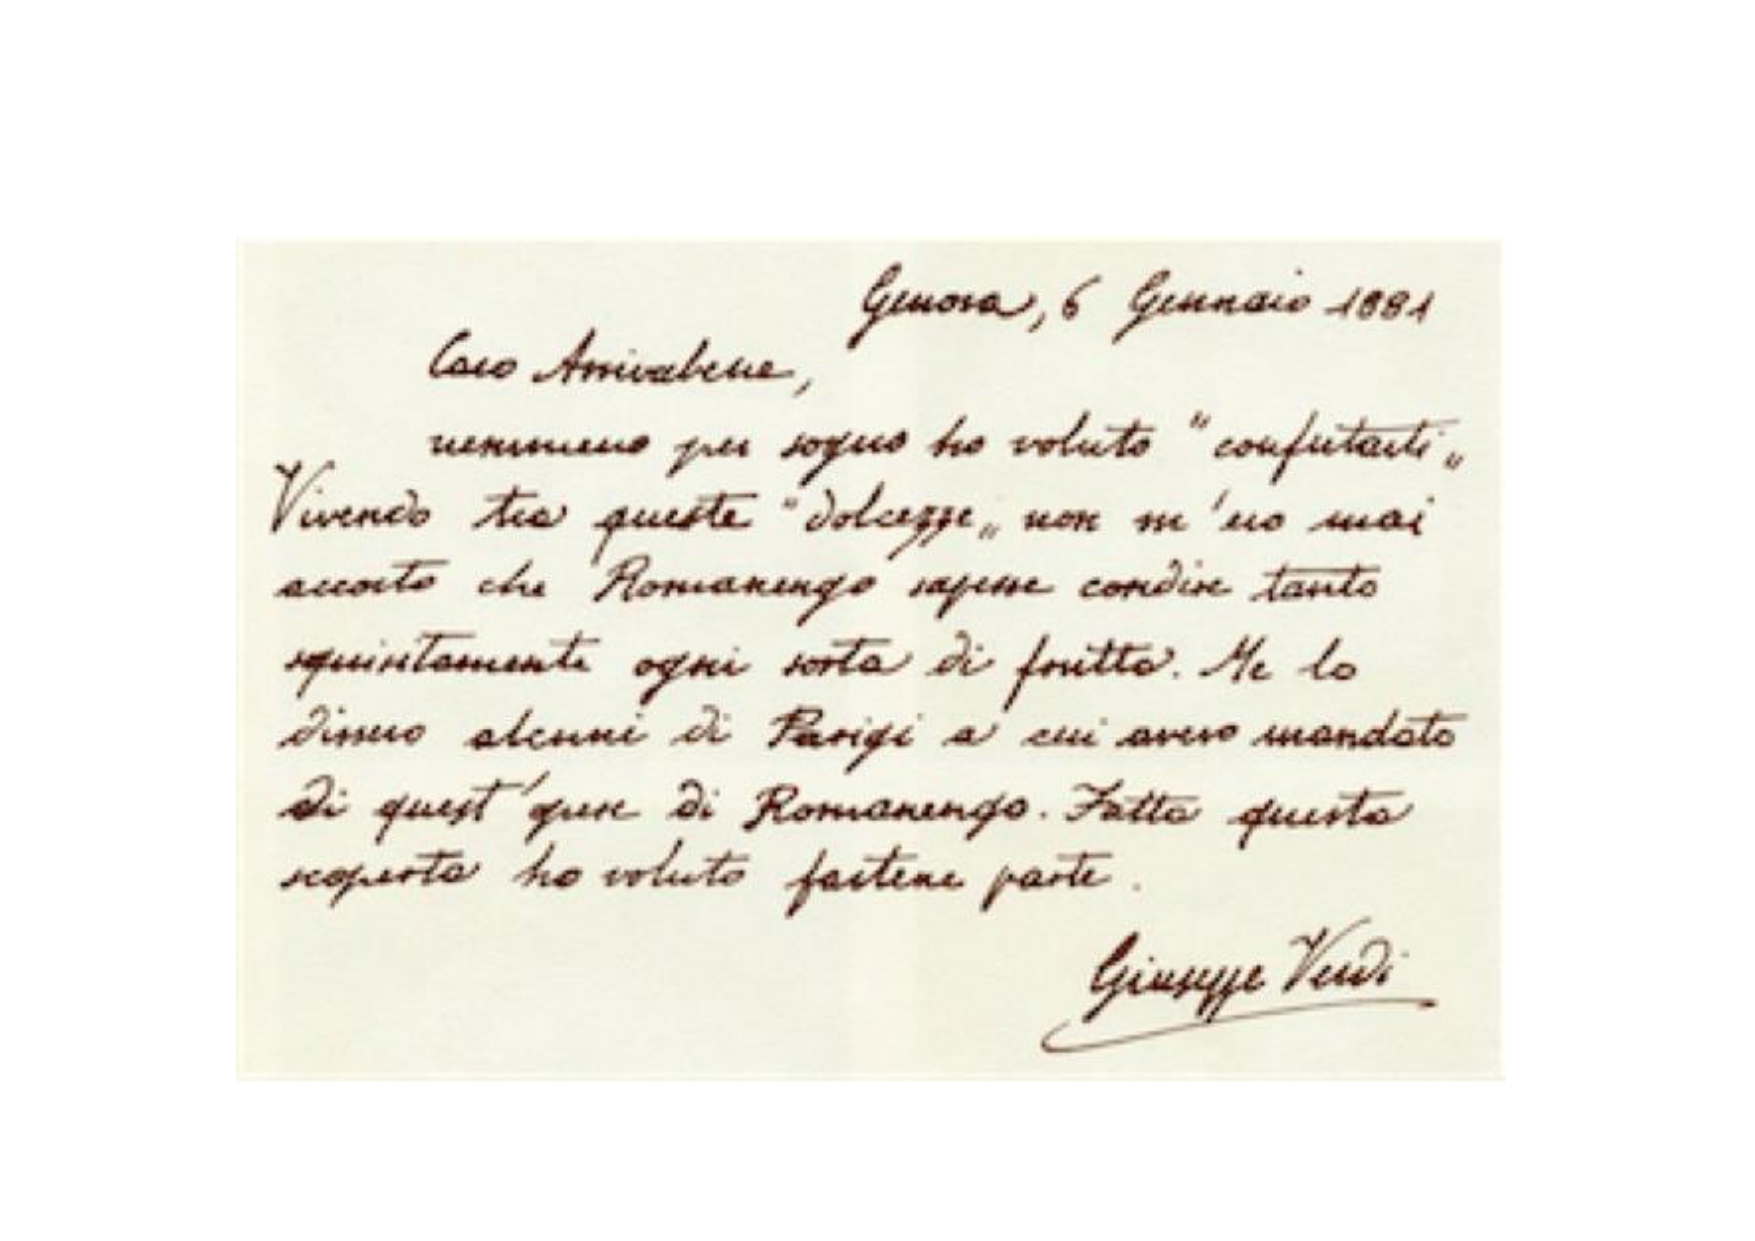 Genova, 6 Gennaio 1881
Caro Arrivabene,
nemmeno per sogno ho voluto "confutarti„
Vivendo tra queste "dolcezze„ non m'ero mai
accorto che Romanengo sapesse condire tanto
squisitamente ogni sorta di frutta. Me lo
dissero alcuni di Parigi a cui avevo mandato
di quest'opere di Romanengo. Fatta questa
scoperta ho voluto fartene parte.
Giuseppe Verdi